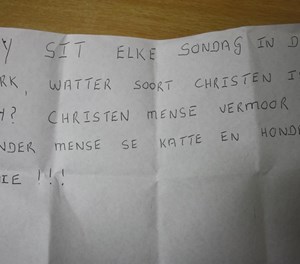 Y SIT ELKE SONDAG IN D
RK, WATTER SOORT CHRISTEN I
H? CHRISTEN MENSE VERMOOR
NDER MENSE SE KATTE EN HOND
IE !!!